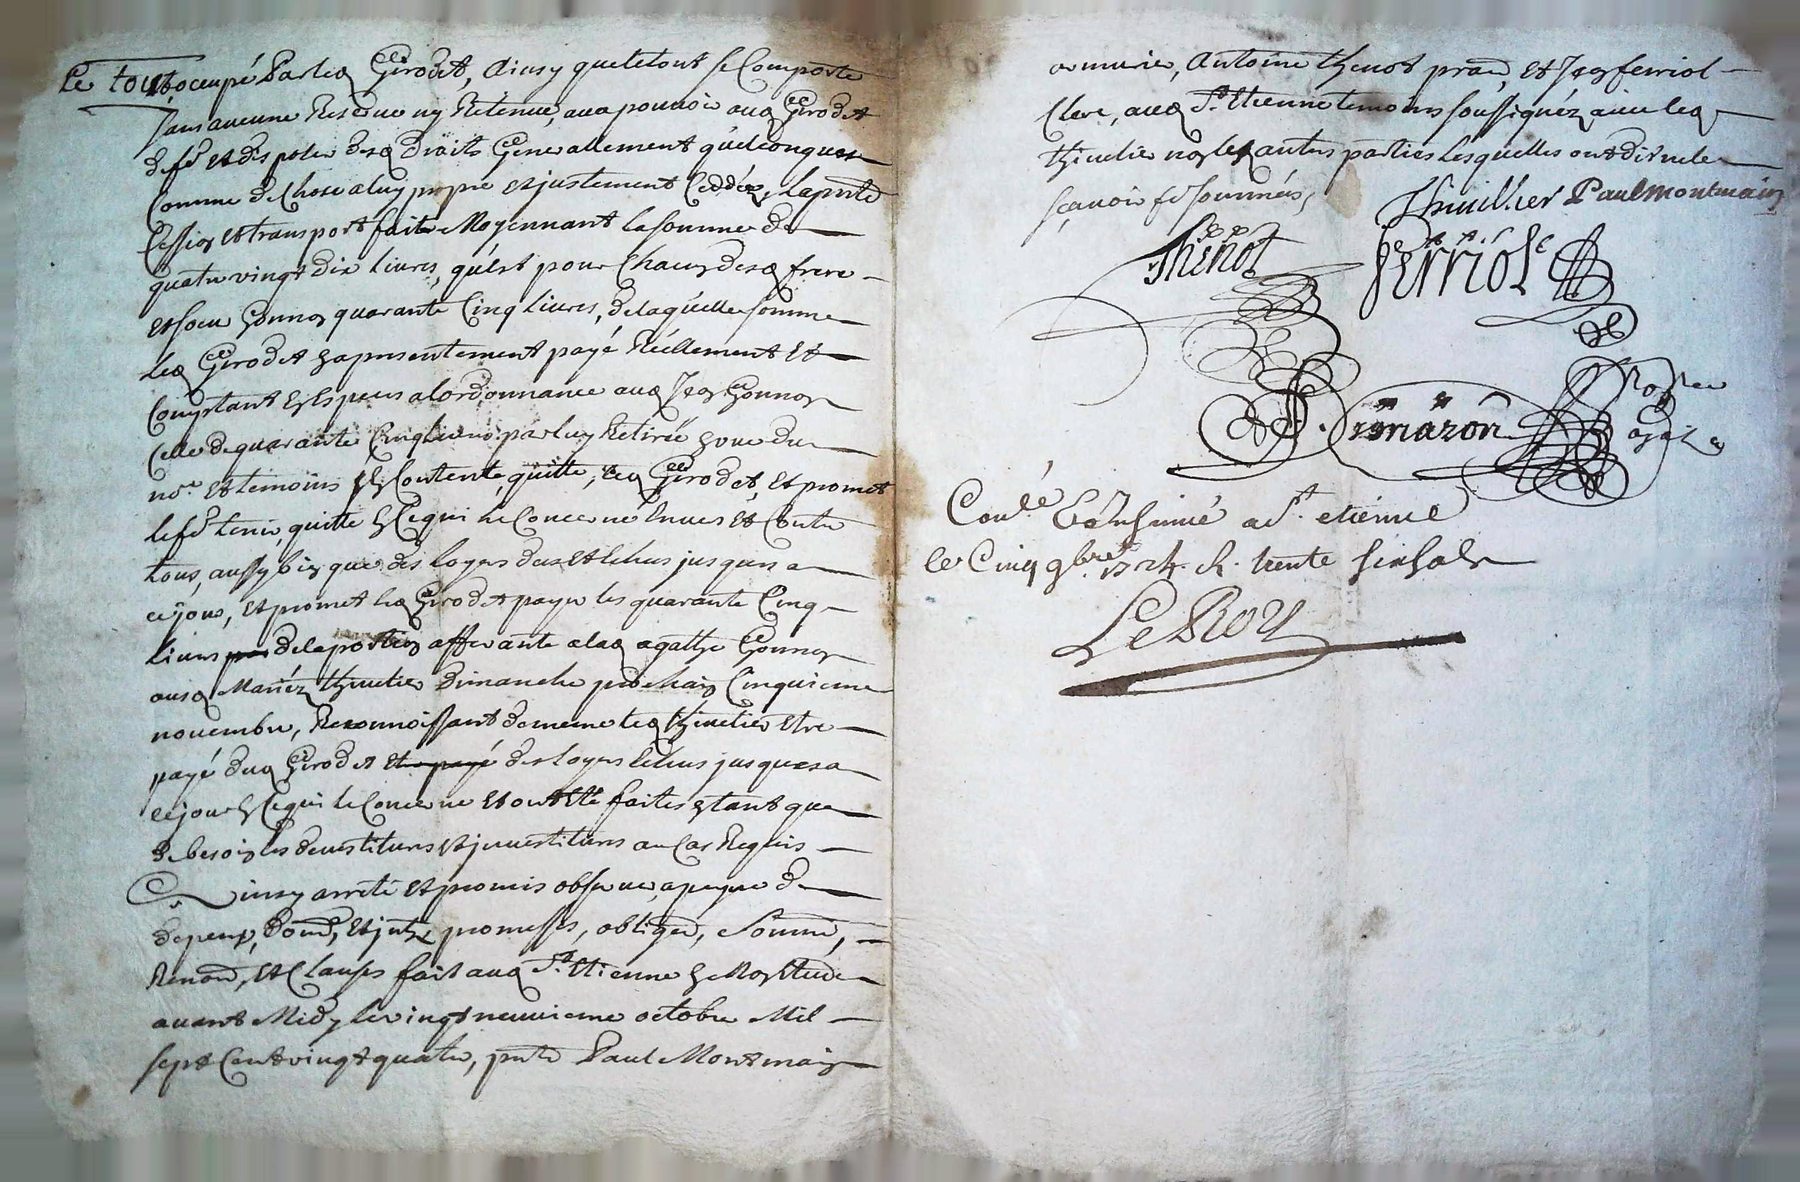 Le tout occupé Par led Girodet, Ainsy que le tout se Comporte
sans aucune Reserve ny Retenue, aud Girodet
et disposer desd droits Generallement quelconques
Comme de Chose a luy propre et justement Ceddée, la pnte
Cession et transport faite Moyennant la somme de
quatre vingt dix livres, qu'est pour Chacun desd frere
et soeur Gonnon quarante Cinq livres, de laquelle somme
led Girodet a presentement payé Réellement et
Comptant en especes a lordonnance aud Jean Gonnon
Celle de quarante Cinq livres par luy Retirée
nore et temoins Contente, quitte, led Girodet, et promet
le fe tenir, quitte en Ce qui le Concerne Envers et Contre
tous, aussy bien que des loyers dus et Echus jusques a
ce jour, et promet led Girodet payer les quarante Cinq
livres de la portion afferante a lad agathe Gonnon
ausd Mariéz thivelier Dimanche prochain Cinquieme
novembre, Reconnoissant de meme led thivelier Etre
payé dud Girodet et payé des loyers Echus jusques a
ce jour en Ce qui le Concerne et ont Eté faites en tant que
de besoin les devestitures et jnvestitures au Cas Requis
Ainsy arreté et promis observer, a peyne de
depens, dom, et jnts, promesses, obligaon, Soumis,
Renon, et Clauses fait aud St Etienne en Mon Etude
avant Midy le vingt neuvieme octobre Mil
sept Cent vingt quatre, pnts Paul Montmain
armurier, Antoine thenot pran, et Jean ferriol
Clerc, aud St Etienne temoins soussignéz avec led
thivelier non les autres parties lesquelles ont dit ne le
sçavoir
Thivillier Paul Montmain
Thenot Ferriol
Conlé a St. etienne
le Cinq 9bre 1724. R. trente six sols
LeRoy